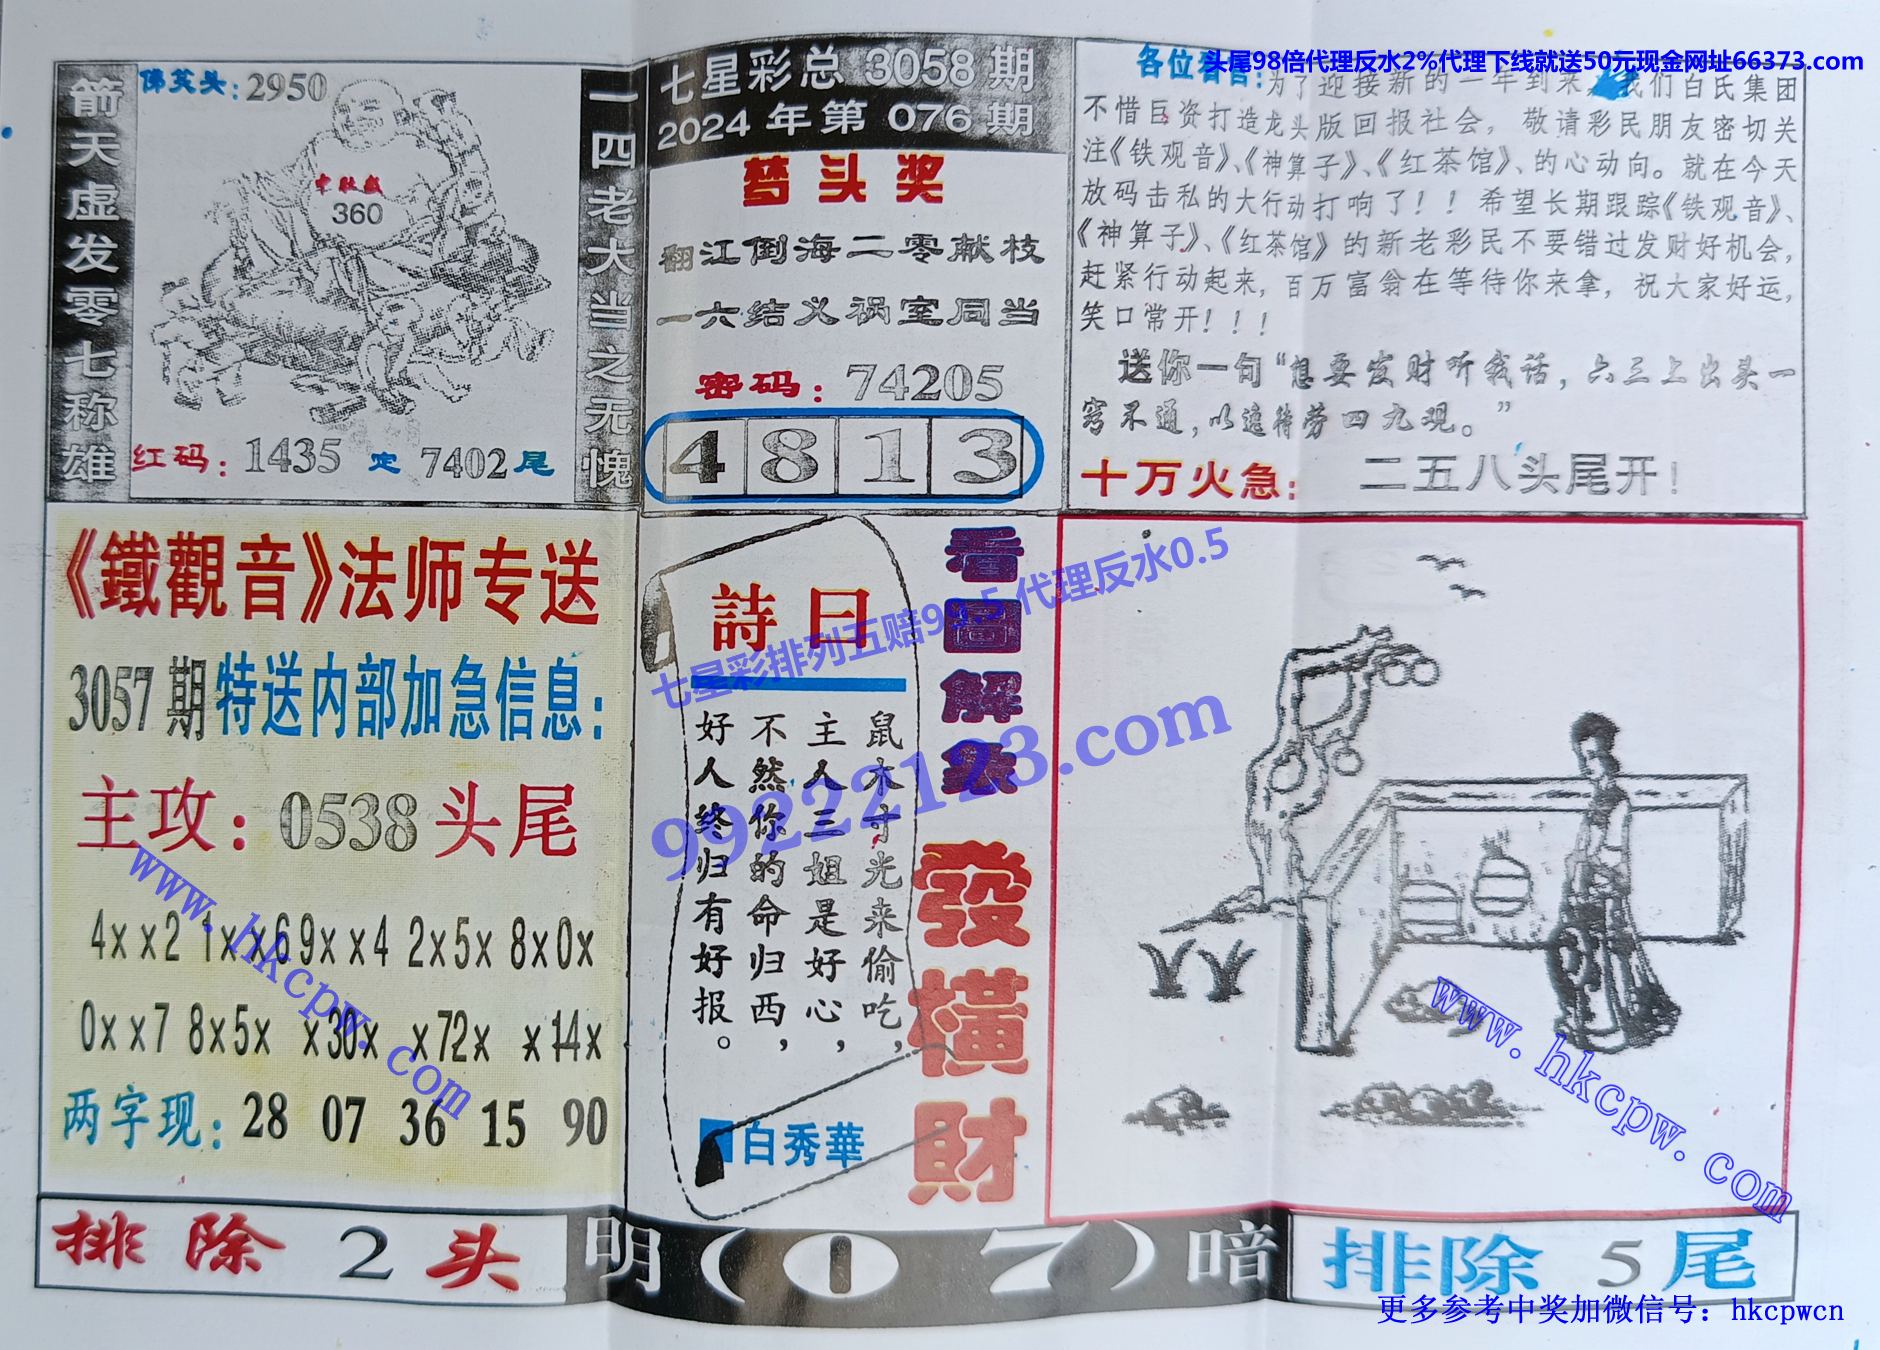 头尾98倍代理反水2%代理下线就送50元现金网址66373.com
箭天虚发零七称雄
佛笑头：2950
360
红码：1435 定 7402尾
一四老大当之无愧
七星彩总 3058 期
2024 年 第 076 期
梦头奖
翻江倒海二零献枝
一六结义祸室同当
密码：74205
4 8 1 3
为了迎接新的一年到来，我们白氏集团
不惜巨资打造龙头版回报社会，敬请彩民朋友密切关
注《铁观音》、《神算子》、《红茶馆》、的心动向。就在今天
放码击私的大行动打响了！！希望长期跟踪《铁观音》、
《神算子》、《红茶馆》的新老彩民不要错过发财好机会，
赶紧行动起来，百万富翁在等待你来拿，祝大家好运，
笑口常开！！！
送你一句“想要发财听我话，六三上出头一
窍不通，以逸待劳四九现。”
十万火急：二五八头尾开！
《鐵觀音》法师专送
3057期特送内部加急信息：
主攻：0538头尾
4××2 1××6 9××4 2×5× 8×0×
0××7 8×5× ×30× ×72× ×14×
两字现：28 07 36 15 90
詩曰
鼠木寸光来偷吃，
主人三姐是好心，
不然你的命归西，
好人终归有好报。
白秀華
看圖解象
發橫財
七星彩排列五赔99.5 代理反水0.5
99222123.com
www.hkcpw.com
www.hkcpw.com
排除 2 头
明（07）暗
排除 5 尾
更多参考中奖加微信号：hkcpwcn